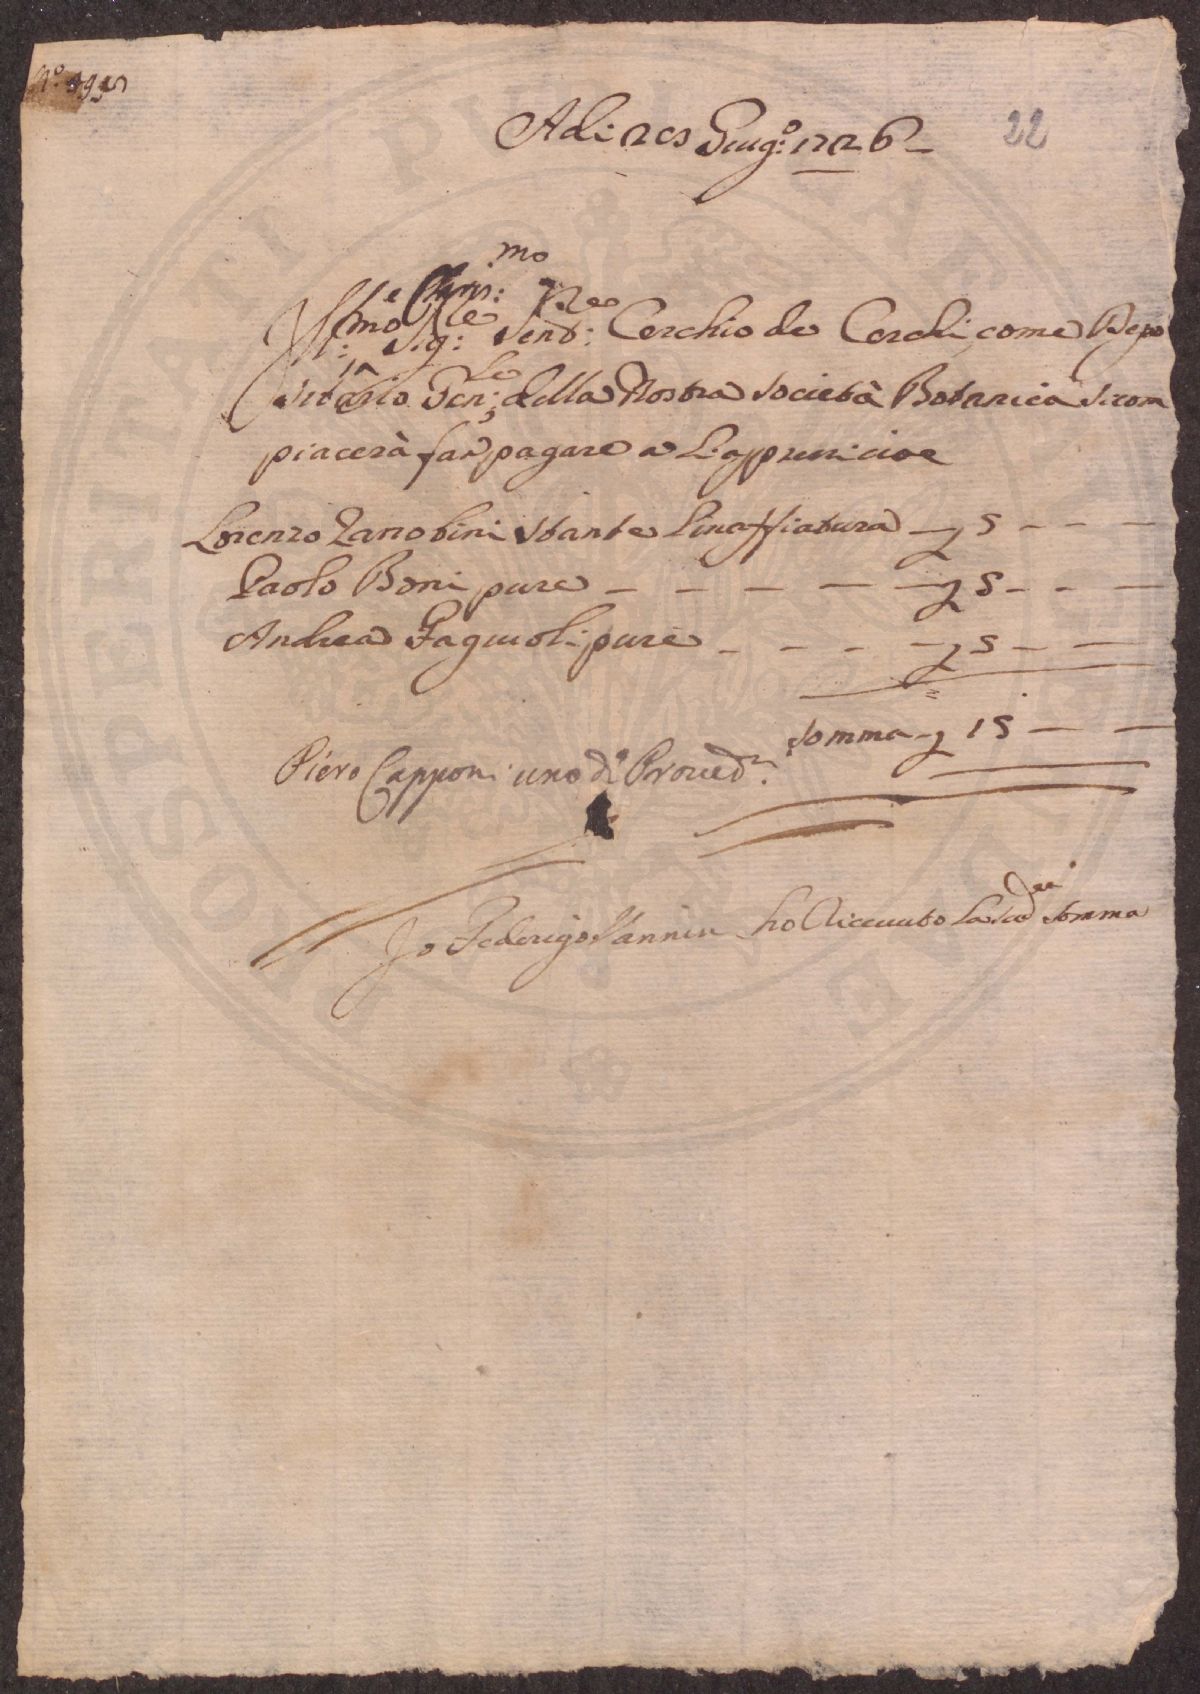 N.º 495
Adi 20 Giug:º 1726
22
e Chiris:mo
Ill:mo Sig:re Send:re Cerchio de Cerchi, come Depo
sitario Gen:le della Nostra Società Botanica si com
piacerà far pagare a L'appresso cioè
Lorenzo Zanobini stante L'inaffiatura — 5 - - -
Paolo Boni pure - - - - - 5 - - -
Andrea Fagiuoli pure - - - - 5 - -
Somma 15 - -
Piero Capponi uno d.i Proved.ri
Io Federigo Vannini ho Ricevuto La sud.a Somma
PROSPERITATI PUBLICAE